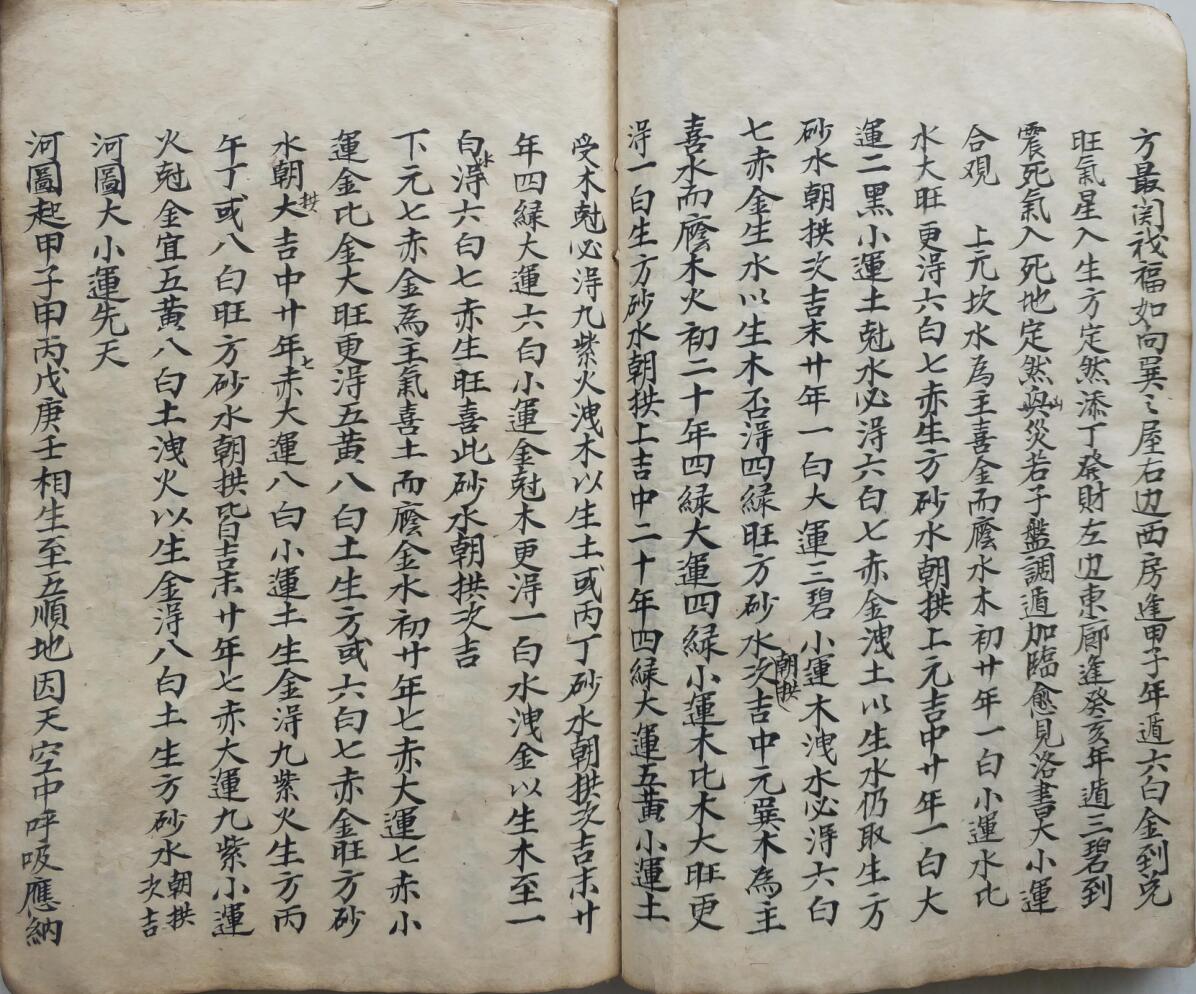 方最関祿福如向巽〻屋右边西房逢甲子年遁六白金到兑
旺氣星入生方定然添丁發財左边東廊逢癸亥年遁三碧到
震死氣入死地定然與災若子盤調遁加臨愈見洛書大小運
合观　上元坎水為主喜金而廕水木初廿年一白小運水比
水大旺更淂六白七赤生方砂水朝拱上元吉中廿年一白大
運二黑小運土尅水必淂六白七赤金洩土以生水仍取生方
砂水朝拱次吉末廿年一白大運三碧小運木洩水必淂六白
七赤金生水以生木否淂四緑旺方砂水朝拱次吉中元巽木為主
喜水而廕木火初二十年四緑大運四緑小運木比木大旺更
淂一白生方砂水朝拱上吉中二十年四緑大運五黄小運土
受木尅必淂九紫火洩木以生土或丙丁砂水朝拱次吉末廿
年四緑大運六白小運金尅木更淂一白水洩金以生木至一
白水淂六白七赤生旺喜此砂水朝拱次吉
下元七赤金為主氣喜土而廕金水初廿年七赤大運七赤小
運金比金大旺更淂五黄八白土生方或六白七赤金旺方砂
水朝拱大吉中廿年七赤大運八白小運土生金淂九紫火生方丙
午丁或八白旺方砂水朝拱皆吉末廿年七赤大運九紫小運
火尅金宜五黄八白土洩火以生金淂八白土生方砂水朝拱次吉
河圖大小運先天
河圖起甲子甲丙戊庚壬相生至五順地因天空中呼吸應納